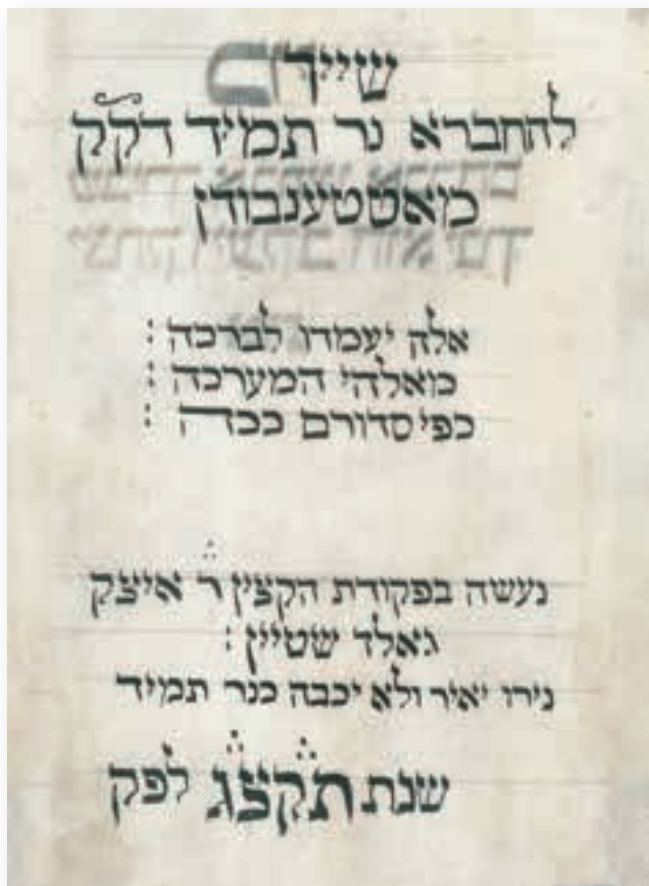 שייך
להחברא נר תמיד דקק
מאטטענבודן
אלה יעמדו לברכה :
מאלהי המערכה :
כפי סדורם ככה :
נעשה בפקודת הקצין ר איצק
גאלד שטיין :
נירו יאיר ולא יכבה כנר תמיד
שנת תקצג לפק